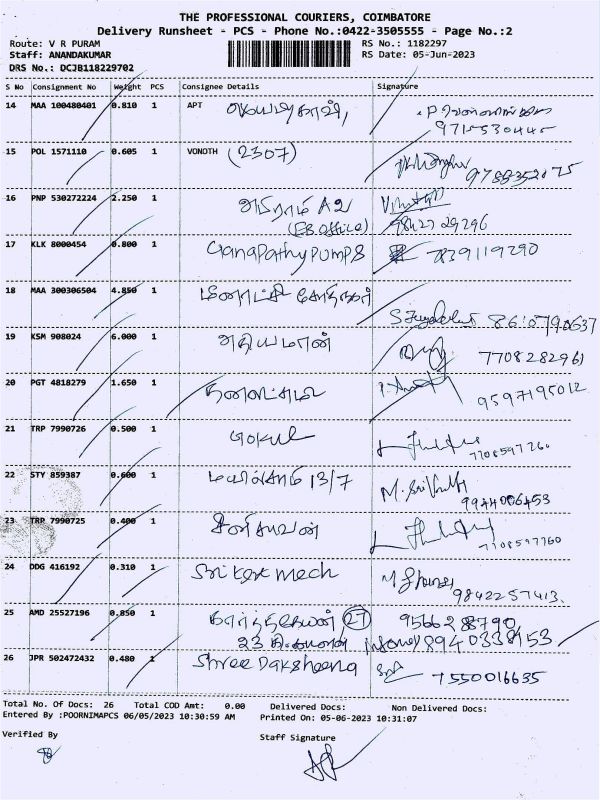 THE PROFESSIONAL COURIERS, COIMBATORE
Delivery Runsheet - PCS - Phone No.:0422-3505555 - Page No.:2
Route: V R PURAM RS No.: 1182297
Staff: ANANDAKUMAR RS Date: 05-Jun-2023
DRS No.: DCJB118229702
S No Consignment No Weight PCS Consignee Details Signature
14 MAA 100480401 0.810 1 APT
15 POL 1571110 0.605 1 VONOTH (2307) 9788352075
16 PNP 530272224 2.250 1 அபிராம் A2
(EB Office) 9842729296
17 KLK 8000454 0.800 1 Ganapathy pumps 7839119290
18 MAA 300306504 4.850 1 மீனாட்சி 8610790637
19 KSM 908024 6.000 1 அதியமான் 7708282961
20 PGT 4818279 1.650 1 தனலட்சுமி 9597195012
21 TRP 7990726 0.500 1 Gokul 7708597760
22 STY 859387 0.600 1 13/7 9944006453
23 TRP 7990725 0.400 1 7708597760
24 DDG 416192 0.310 1 mech 9842257413
25 AMD 25527196 0.850 1 27 9566288790
23 8940338953
26 JPR 502472432 0.480 1 Shree Daksheena 7550016635
Total No. Of Docs: 26 Total COD Amt: 0.00 Delivered Docs: Non Delivered Docs:
Entered By :POORNIMAPCS 06/05/2023 10:30:59 AM Printed On: 05-06-2023 10:31:07
Verified By Staff Signature